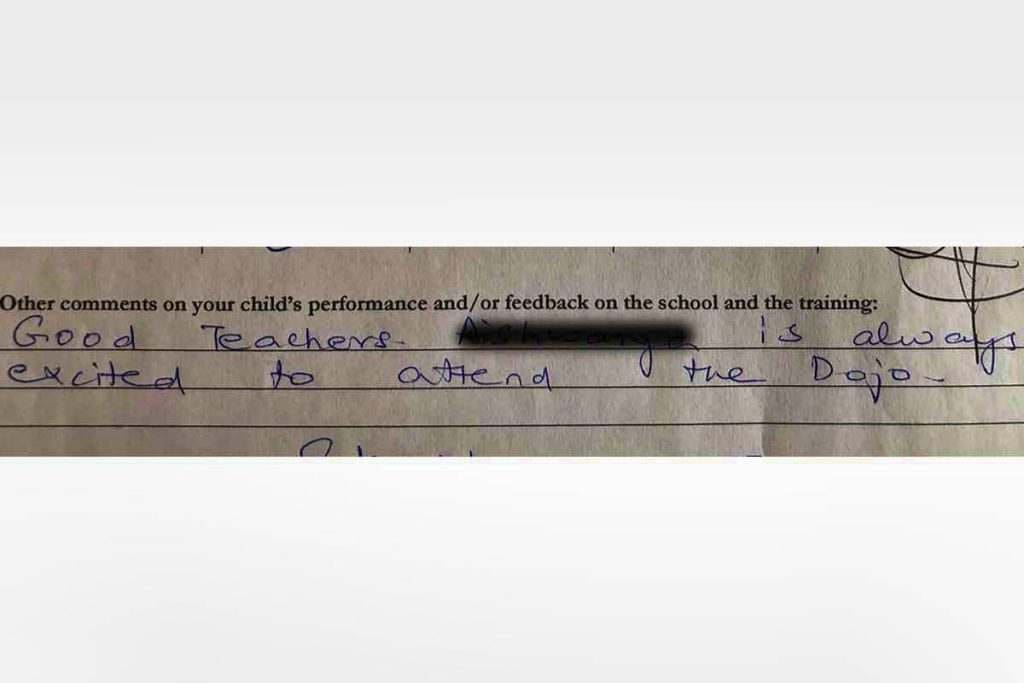 Other comments on your child's performance and/or feedback on the school and the training:
Good Teachers. is always
excited to attend the Dojo.